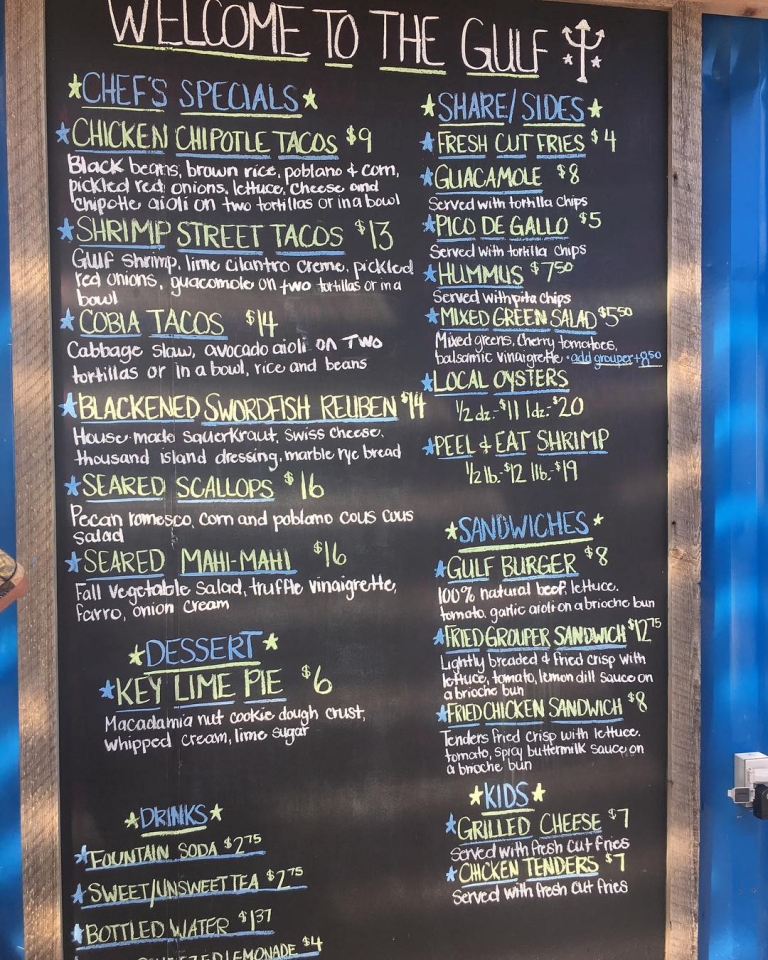 WELCOME TO THE GULF
CHEF'S SPECIALS
CHICKEN CHIPOTLE TACOS $9
Black beans, brown rice, poblano & corn,
pickled red onions, lettuce, cheese and
chipotle aioli on two tortillas or in a bowl
SHRIMP STREET TACOS $13
Gulf shrimp, lime cilantro creme, pickled
red onions, guacamole on two tortillas or in a
bowl
COBIA TACOS $14
Cabbage slaw, avocado aioli on two
tortillas or in a bowl, rice and beans
BLACKENED SWORDFISH REUBEN $14
House made sauerkraut, swiss cheese,
thousand island dressing, marble rye bread
SEARED SCALLOPS $16
Pecan romesco, corn and poblano cous cous
salad
SEARED MAHI-MAHI $16
Fall vegetable salad, truffle vinaigrette,
farro, onion cream
DESSERT
KEY LIME PIE $6
Macadamia nut cookie dough crust,
whipped cream, lime sugar
DRINKS
FOUNTAIN SODA $2.75
SWEET/UNSWEET TEA $2.75
BOTTLED WATER $1.37
LEMONADE $4
SHARE/SIDES
FRESH CUT FRIES $4
GUACAMOLE $8
Served with tortilla chips
PICO DE GALLO $5
Served with tortilla chips
HUMMUS $7.50
Served with pita chips
MIXED GREEN SALAD $5.50
Mixed greens, cherry tomatoes,
balsamic vinaigrette • add grouper +8.50
LOCAL OYSTERS
1/2 dz.-$11 1dz.-$20
PEEL & EAT SHRIMP
1/2 lb.-$12 1lb.-$19
SANDWICHES
GULF BURGER $8
100% natural beef, lettuce,
tomato, garlic aioli on a brioche bun
FRIED GROUPER SANDWICH $12.75
Lightly breaded & fried crisp with
lettuce, tomato, lemon dill sauce on
a brioche bun
FRIED CHICKEN SANDWICH $8
Tenders fried crisp with lettuce,
tomato, spicy buttermilk sauce on
a brioche bun
KIDS
GRILLED CHEESE $7
Served with fresh cut fries
CHICKEN TENDERS $7
Served with fresh cut fries